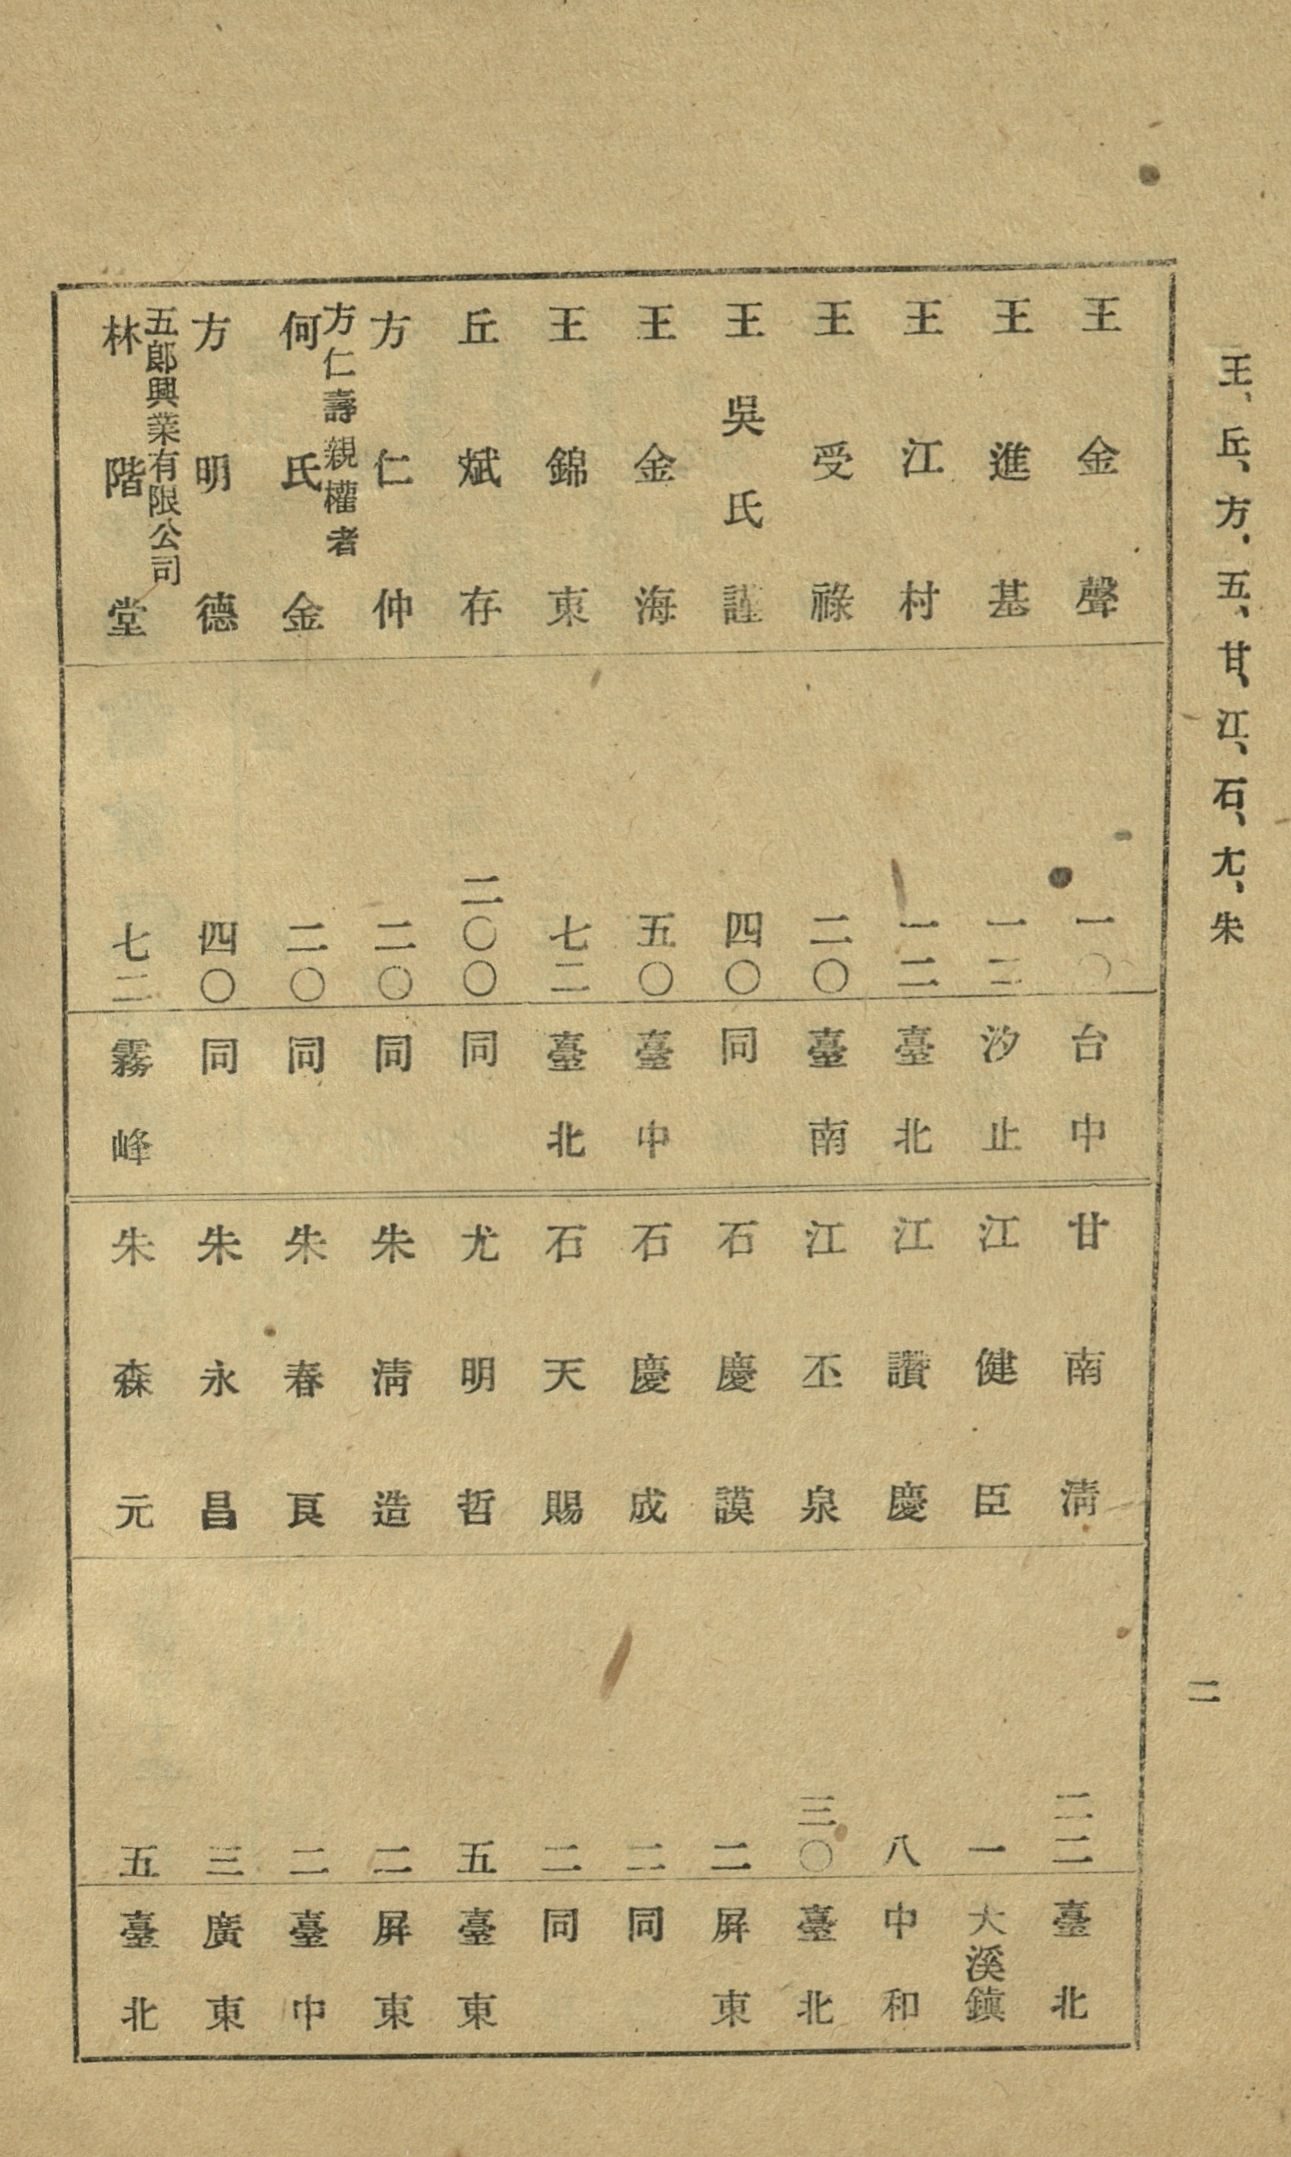 王、丘、方、五、甘、江、石、尤、朱
二
王金聲 一〇 台中
王進基 一二 汐止
王江村 一二 臺北
王受祿 二〇 臺南
王吳氏謹 四〇 同
王金海 五〇 臺中
王錦東 七二 臺北
丘斌存 二〇〇 同
方仁仲 二〇 同
方仁壽親權者
何氏金 二〇 同
方明德 四〇 同
五郎興業有限公司
林階堂 七二 霧峰
甘南淸 二二 臺北
江健臣 一 大溪鎮
江讚慶 八 中和
江丕泉 三〇 臺北
石慶謨 二 屏東
石慶成 二 同
石天賜 二 同
尤明哲 五 臺東
朱淸造 二 屏東
朱春良 二 臺中
朱永昌 三 廣東
朱森元 五 臺北